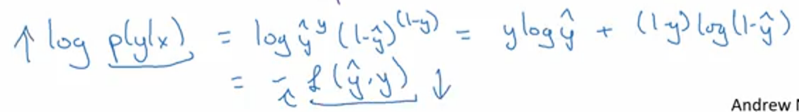 ↑ log p(y|x) = log ŷ^y (1-ŷ)^(1-y) = y log ŷ + (1-y) log(1-ŷ)
= - ℒ(ŷ, y) ↓
Andrew